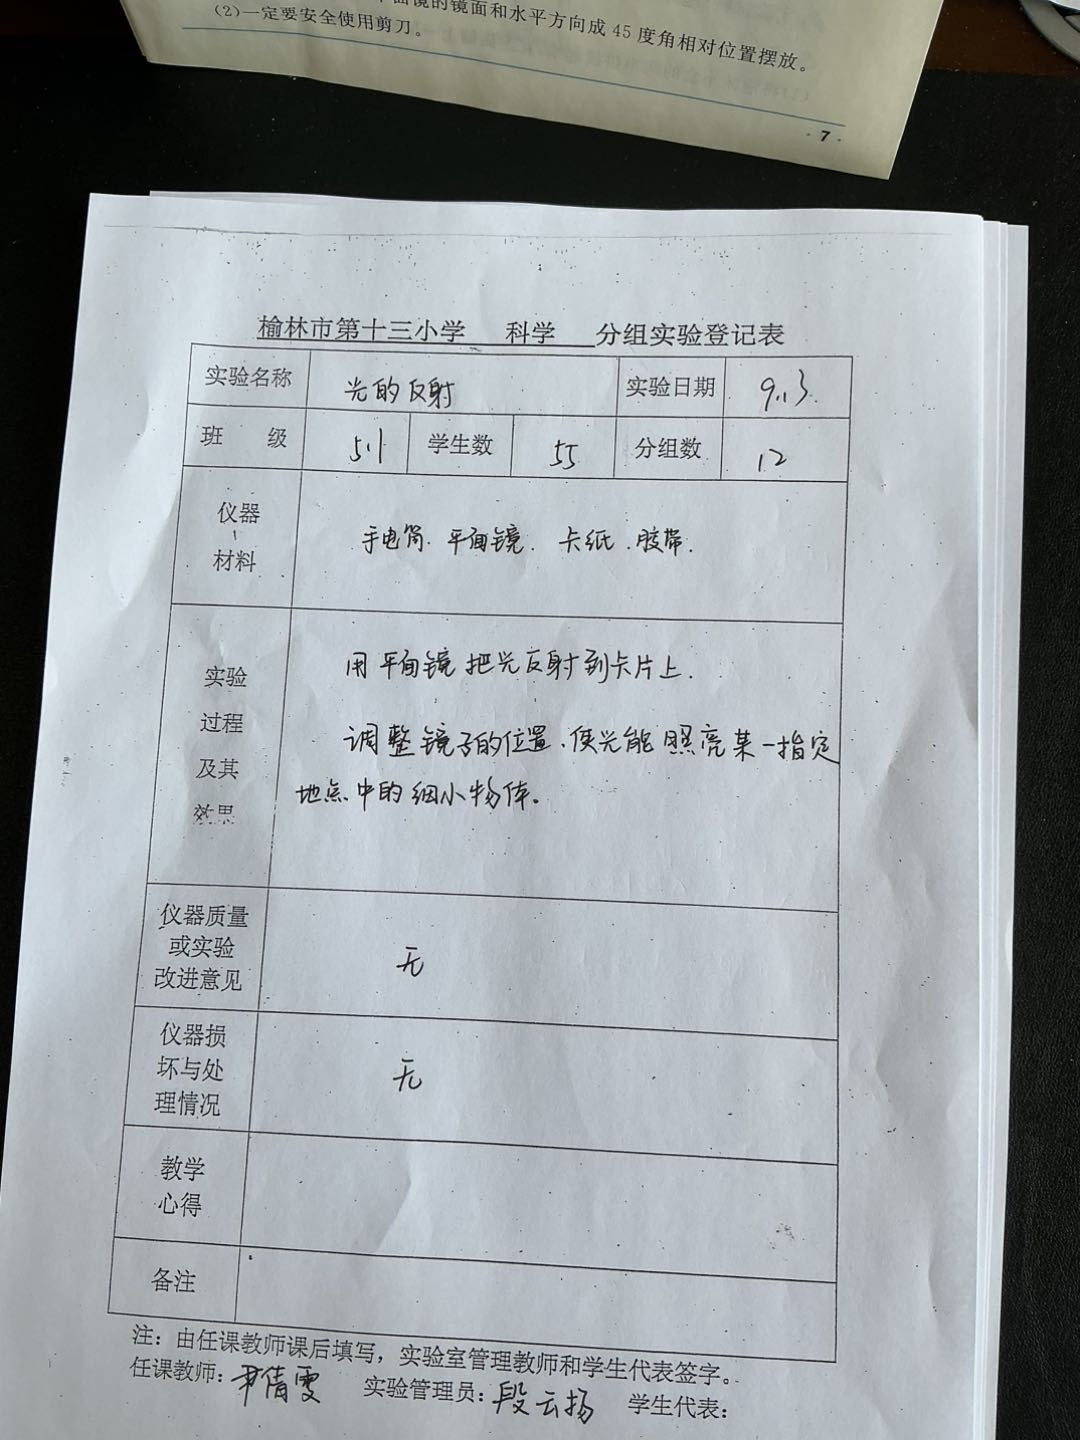 面镜的镜面和水平方向成 45 度角相对位置摆放。
(2)一定要安全使用剪刀。
· 7 ·
榆林市第十三小学 科学 分组实验登记表
实验名称 光的反射 实验日期 9.13.
班 级 5.1 学生数 55 分组数 12
仪器
、
材料
手电筒、平面镜、卡纸、胶带.
实验
过程
及其
效果
用平面镜把光反射到卡片上.
调整镜子的位置、使光能照亮某一指定
地点中的细小物体。
仪器质量
或实验
改进意见
无
仪器损
坏与处
理情况
无
教学
心得
备注
注：由任课教师课后填写，实验室管理教师和学生代表签字。
任课教师：尹倩雯 实验管理员：段云扬 学生代表：